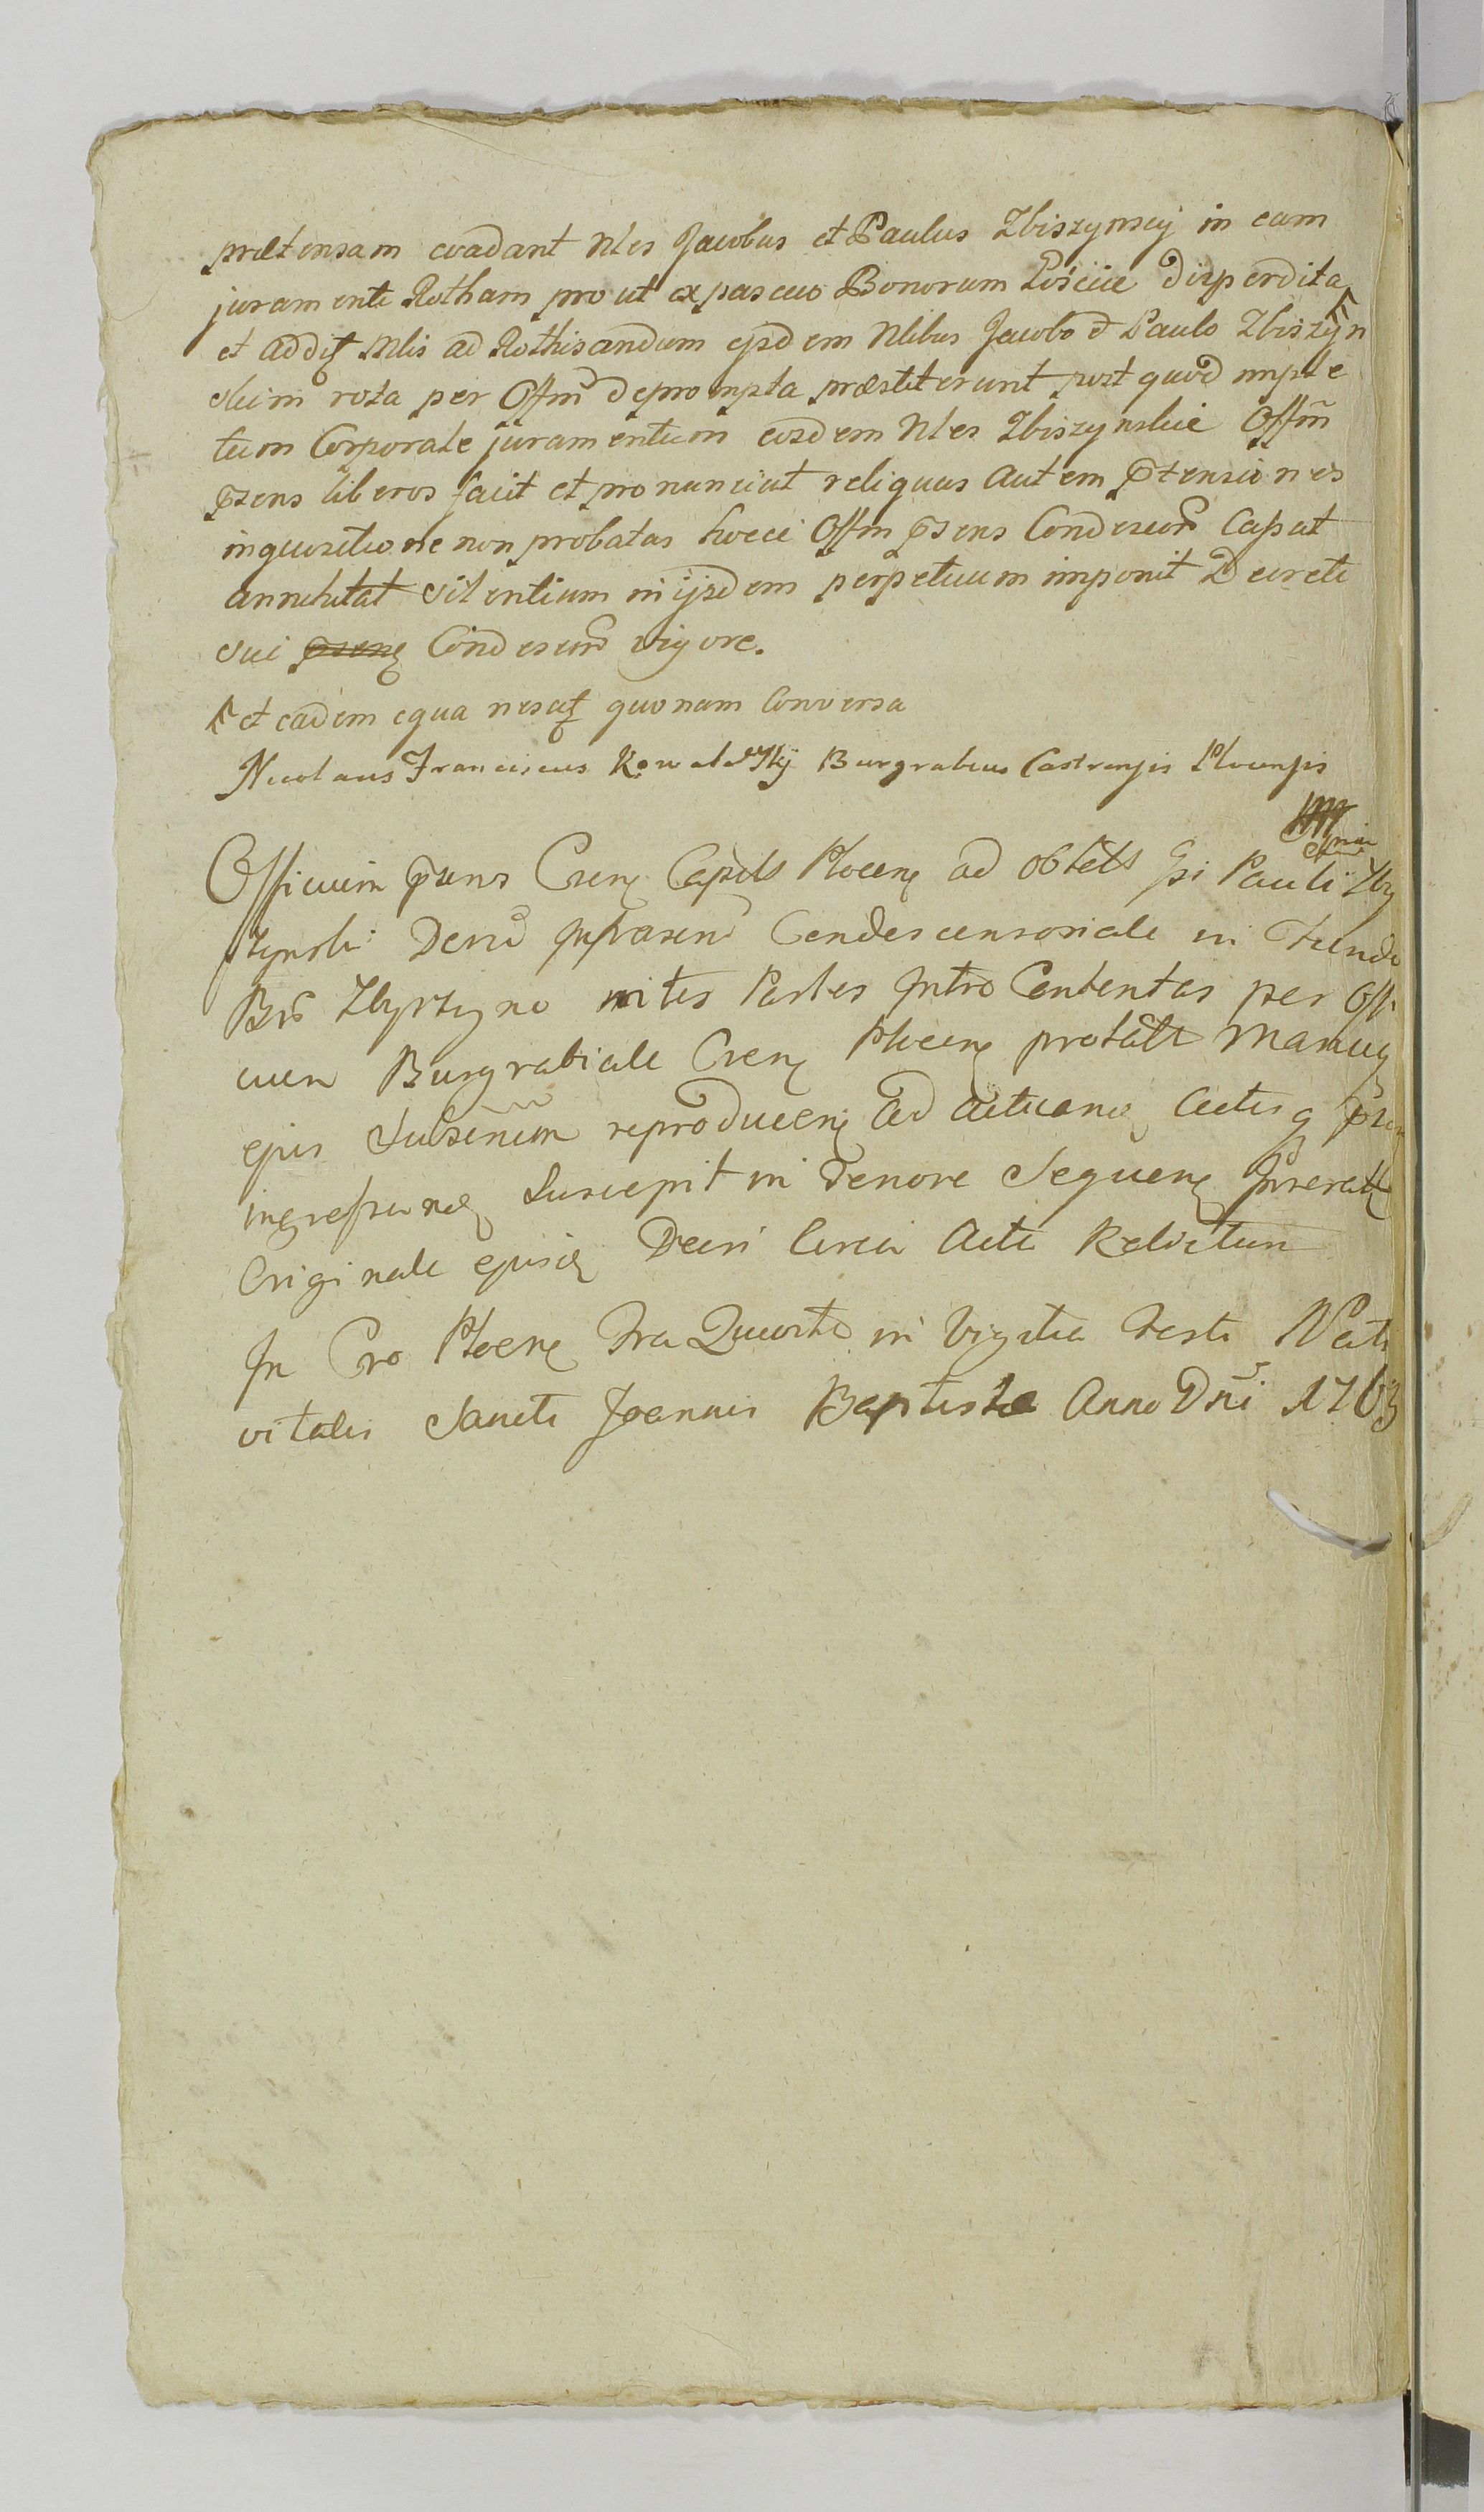 prætensam evadant Nles Jacobus et Paulus Zbiszynscy in eam
juramenti Rotham pro ut ex pascuo Bonorum Liścice disperdita
et addit Mlis ad Rothisandum ejsdem Nlibus Jacobo et Paulo Zbiszyn
skim rota per Offm deprompta præstiterunt post quod imple
tum Corporale juramentum eosdem Nles Zbiszynskie Offm
pzens liberos facit et pronunciat reliquas autem ptensiones
inquisitione non probatas hocce Offm psens Condescen Cassat
annihilat silentium in ijsdem perpetuum imponit Decreti
sui psens Condescen vigore.
et eadem equa nescit quonam Conversa
Nicolaus Franciscus Kowalewskÿ Burgrabius Castrensis Plocensis
Officium psens Csene Capitls Plocen ad obtets Gsi Pauli Zby
szynski Decre Infrascrip Condescensoriale in Fundo
Bro Zbyszyno inter Partes Intro Contentas per Offi
cium Burgrabiale Csen Plocen prolatt Manuq
ejus Subscriptum reproducen ad acticand Actisq psen
ingrossand Suscepit in Tenore Sequen Inseratt
Originale ejusd Decri Circa Acta Relictum
In Cro Plocen Fra Quarta in Vigilia Festi Nati
vitatis Sancti Joannis Baptistæ Anno Dni 1763